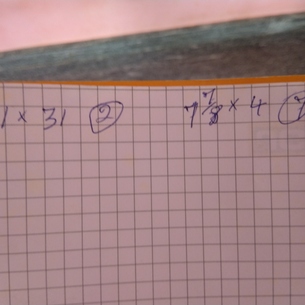 1 × 31 ② 7 7/8 × 4